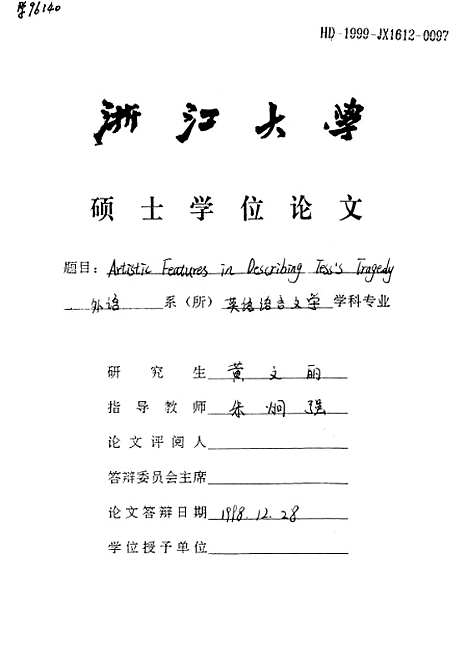 学96140
HD-1999-JX1612-0097
浙江大学
硕士学位论文
题目: Artistic Features in Describing Tess's Tragedy
外语 系(所) 英语语言文学 学科专业
研究生 黄文丽
指导教师 朱炯强
论文评阅人
答辩委员会主席
论文答辩日期 1998.12.28
学位授予单位